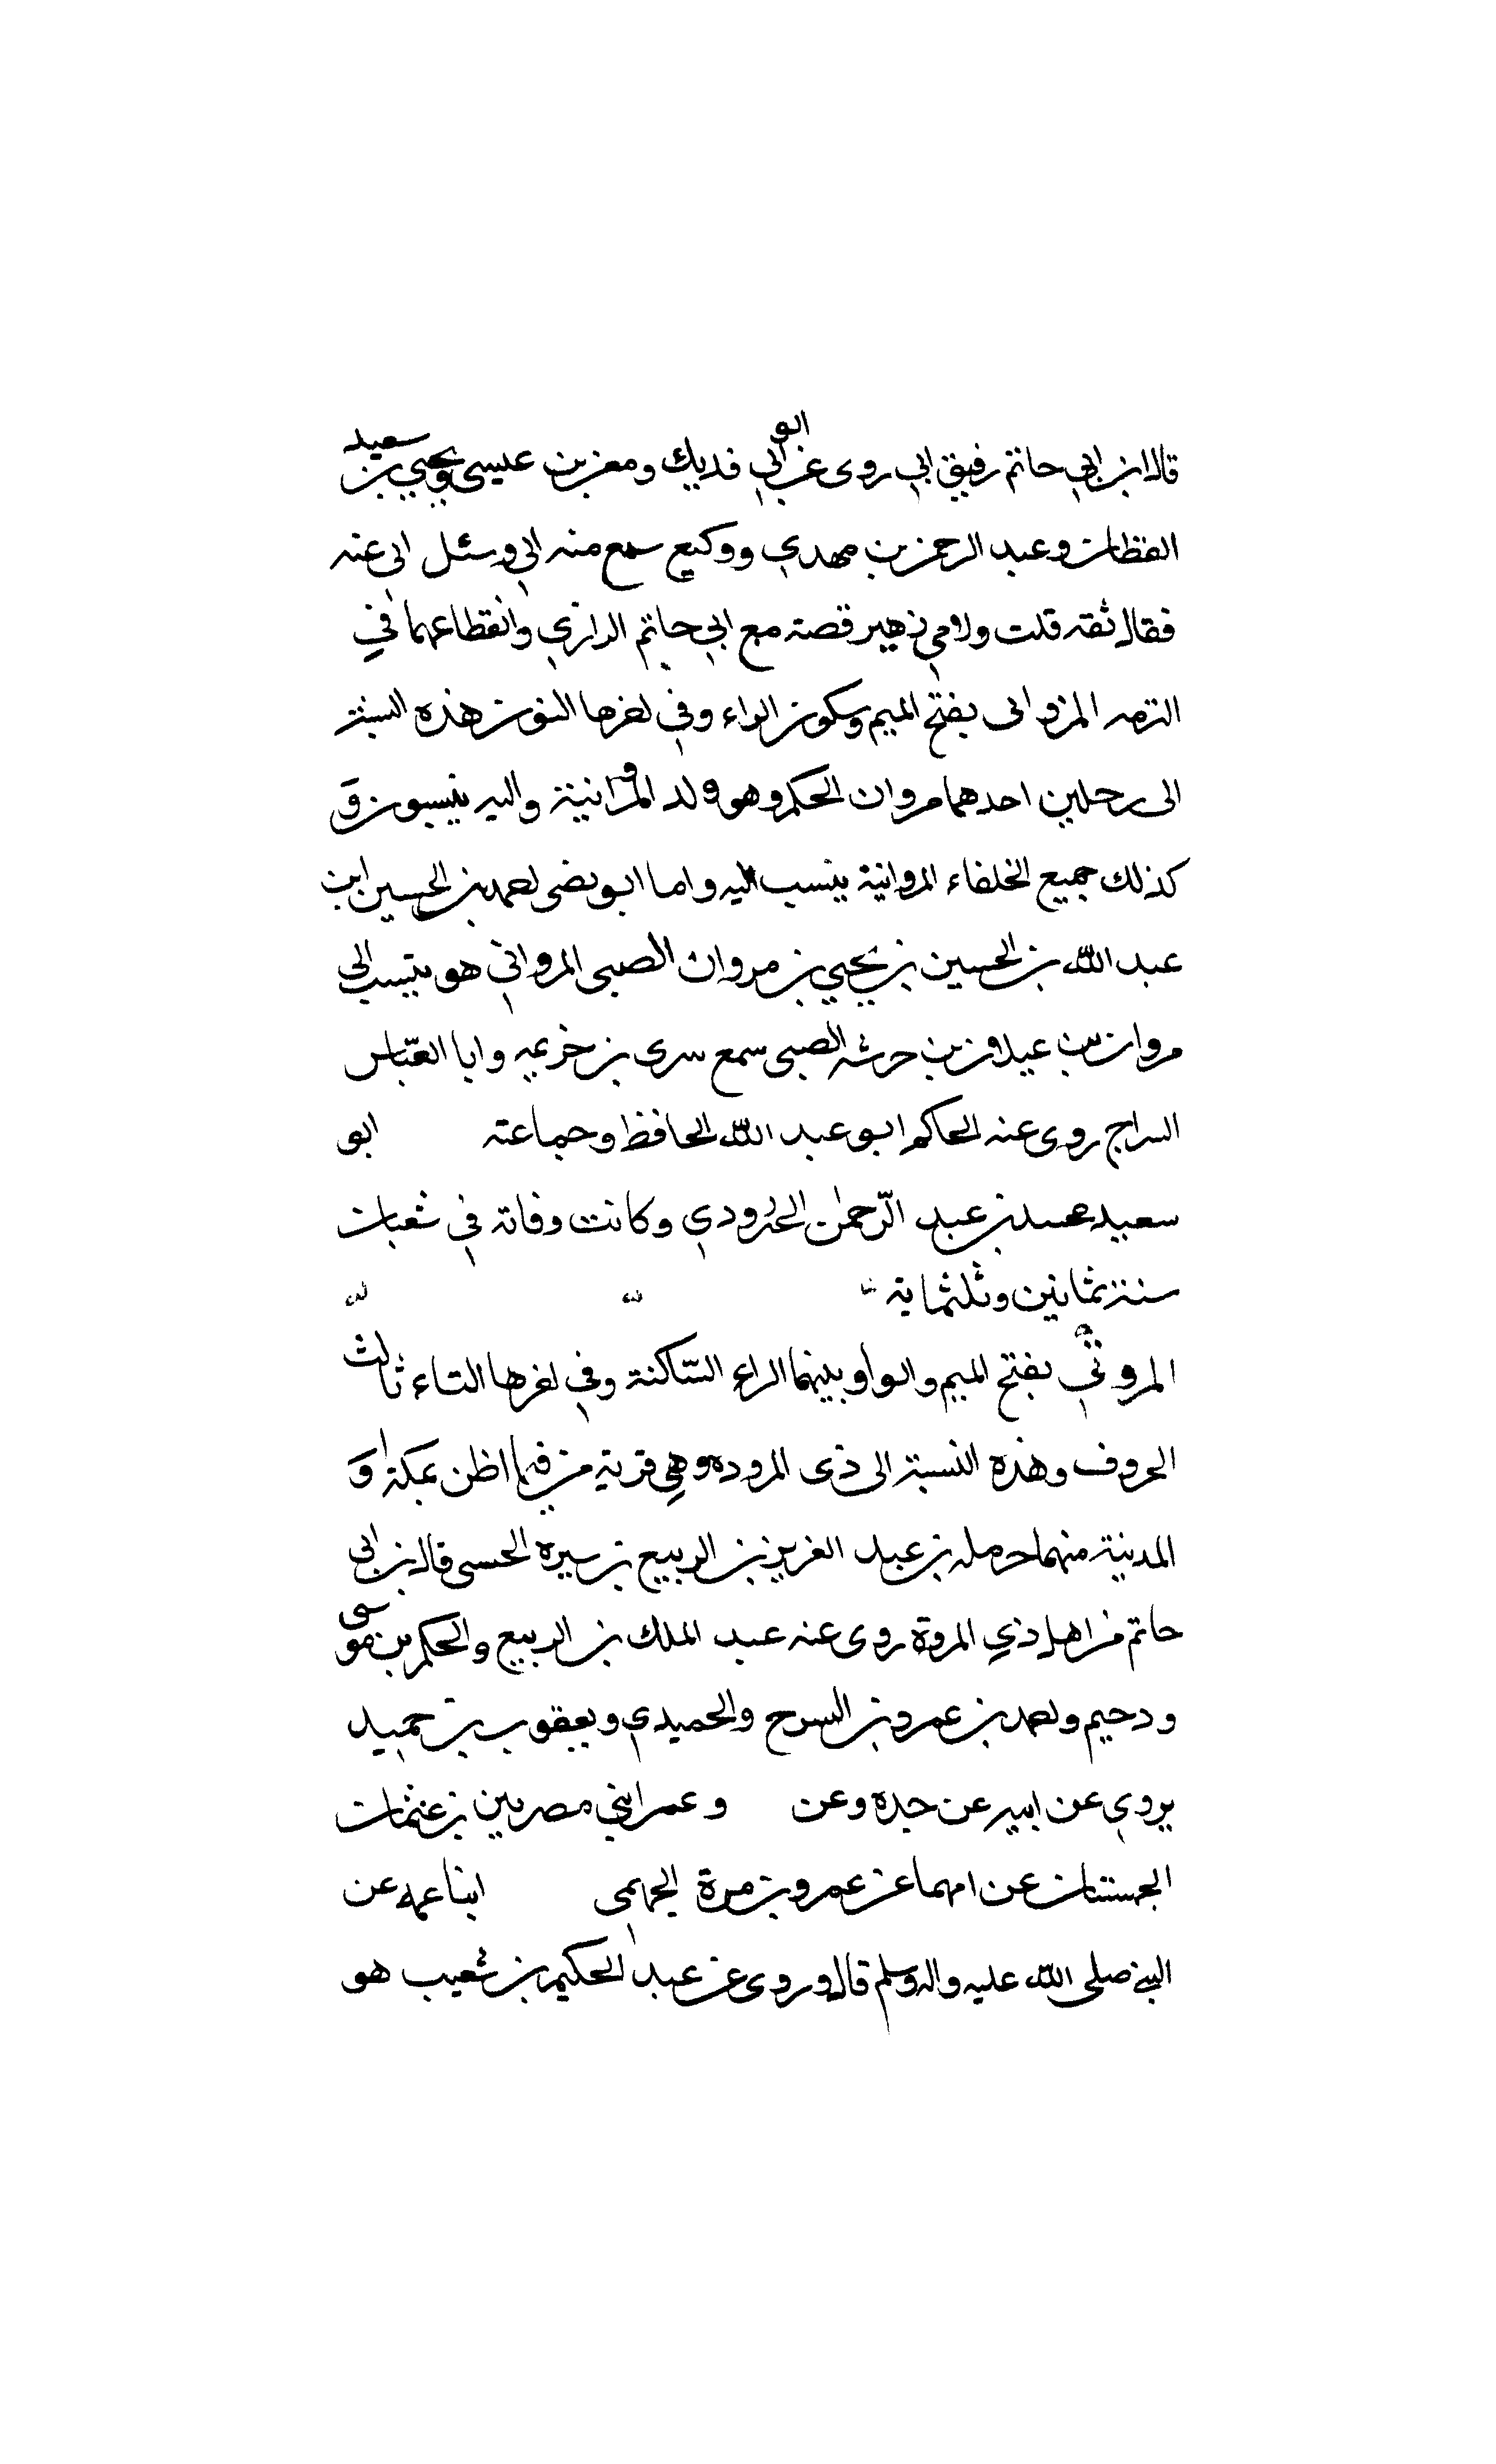 قال ابن ابي حاتم رفيق ابي روى عن ابي فديك ومعن بن عيسى ويحيي بن سعيد
القطان وعبد الرحمن بن مهدي ووكيع سمع منه ابي وسئل ابى عنه
فقال ثقه قلت ولامي زهير قصة مع ابي حاتم الرازي وانقطاعهما في
الترمه المروانى بفتح الميم وسكون الراء وفي اخرها النون هذه النسبة
الى رجلين احدهما مروان الحكم وهو ولد المروانية واليه ينسبون و
كذلك جميع الخلفاء المروانية ينسب اليه واما ابو نضى محمد بن الحسين ابن
عبد الله بن الحسين بن يحيي بن مروان الضبى المرواني هو ينتسب الى
مروان بن عيلان بن حرشه الضبى سمع سرى بن خزيمه وابا العبّاس
السراج روى عنه الحاكم ابو عبد الله الحافظ وجماعته ابو
سعيد محمد بن عبد الرّحمٰن الجرودي وكانت وفاته في شعبان
سنة ثمانين وثلثماية
المروتي بفتح الميم والواو بينهما الراء السّاكنة وفي اخرها التاء ثالث
الحروف وهذه النسبة الى ذى المروه وهي قرية من فيما اظن بمكة و
المدينة منهما حرمله بن عبد العزيز بن الربيع بن سبره الجسى قال بن ابى
حاتم من اهل ذي المروة روى عنه عبد الملك بن الربيع والحكم بن موسى
ودحيم ومحمد بن عمرو بن السرح والحميدي ويعقوب بن حميد
يروي عن ابيه عن جده وعن وعمر ابني مصر س بن عثمان
الجهنيان عن امهما عن عمرو بن مرة الجهمى ابنا عمه عن
النبي صلى الله عليه واله وسلم قال وروى عن عبد الحكيم بن شعيب هو